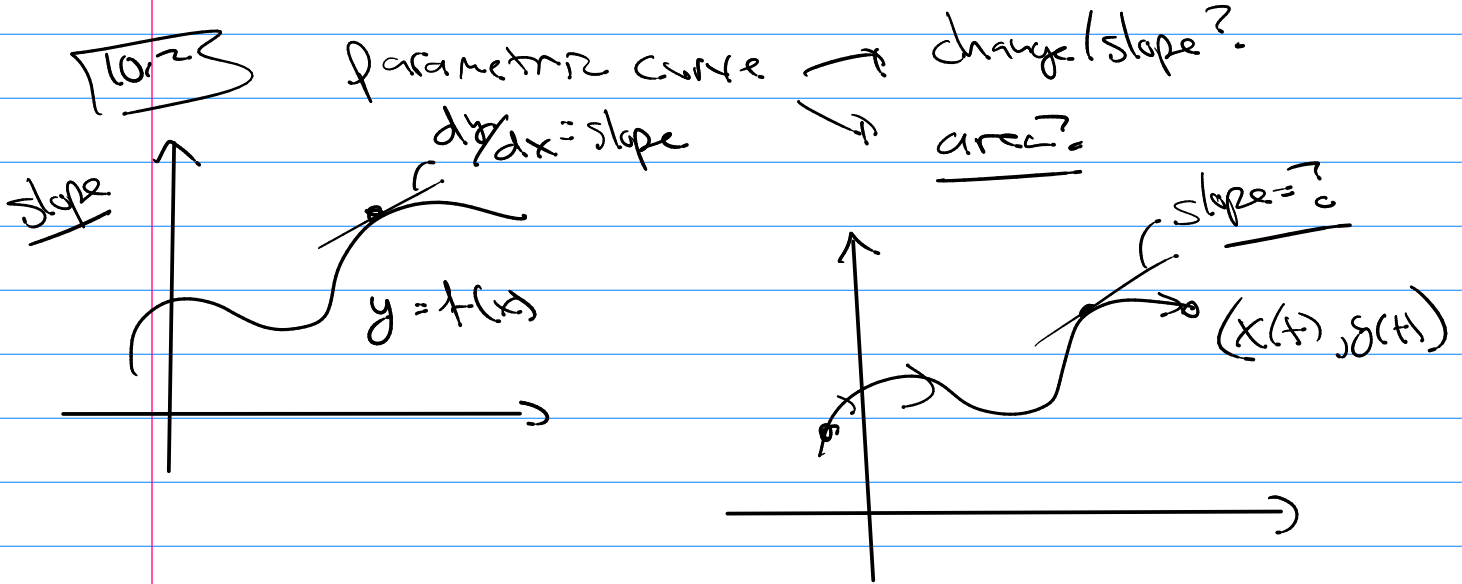 10.2 parametric curve → change/slope?
→ area?
slope
dy/dx = slope
y = f(x)
slope = ?
(x(t), y(t))